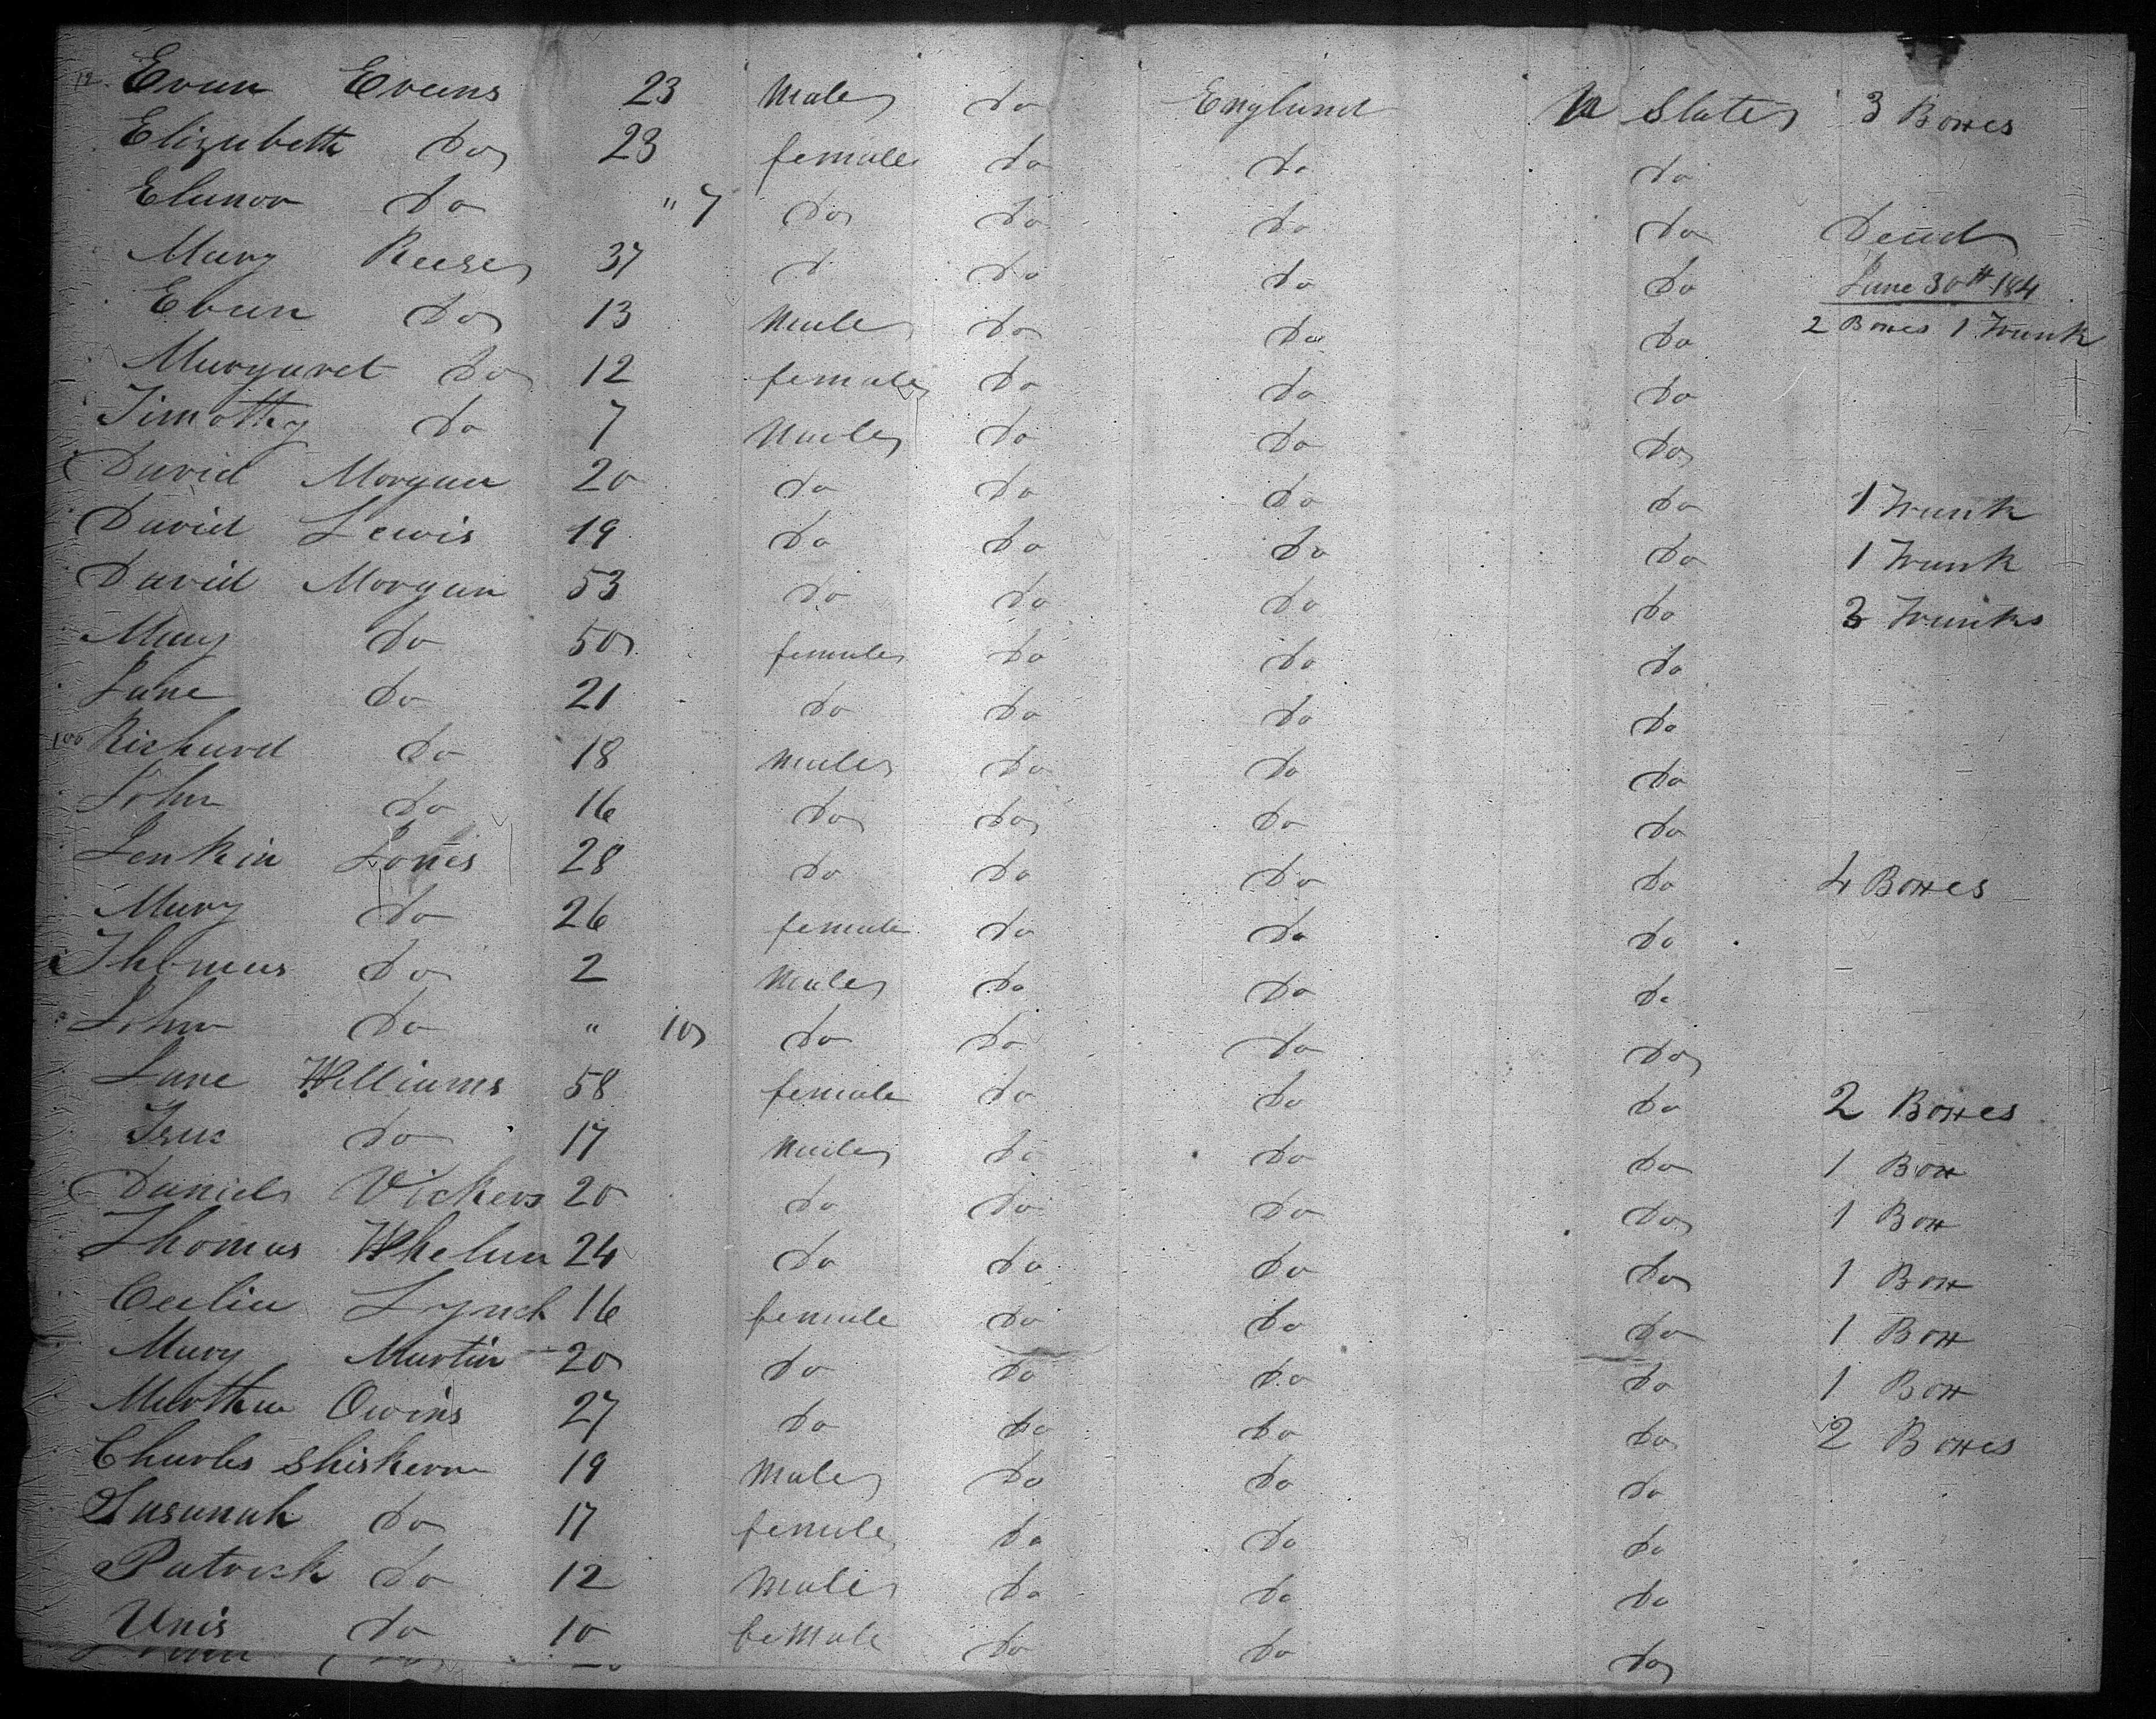 Evan Evans 23 Male do England U States 3 Boxes
Elizabeth do 23 female do do do
Elanor do " 7 do do do do Dead
Mary Reese 37 d do do do June 30th 184
Evan do 13 Male do do do 2 Boxes 1 Trunk
Margaret do 12 female do do do
Timothy do 7 Male do do do
David Morgan 20 do do do do 1 Trunk
David Lewis 19 do do do do 1 Trunk
David Morgan 53 do do do do 3 Trunks
Mary do 50 female do do do
Jane do 21 do do do do
100 Richard do 18 Male do do do
John do 16 do do do do
Jenkin Jones 28 do do do do 4 Boxes
Mary do 26 female do do do
Thomas do 2 Male do do do
John do " 10 do do do do
Jane Williams 58 female do do do 2 Boxes
Isac do 17 Male do do do 1 Box
Daniel Vickers 20 do do do do 1 Box
Thomas Whelan 24 do do do do 1 Box
Ceelia Lynch 16 female do do do 1 Box
Mary Martin 20 do do do do 1 Box
Martha Owins 27 do do do do 2 Boxes
Charles Shiskern 19 Male do do do
Susanah do 17 female do do do
Patrick do 12 Male do do do
Unis do 10 feMale do do do